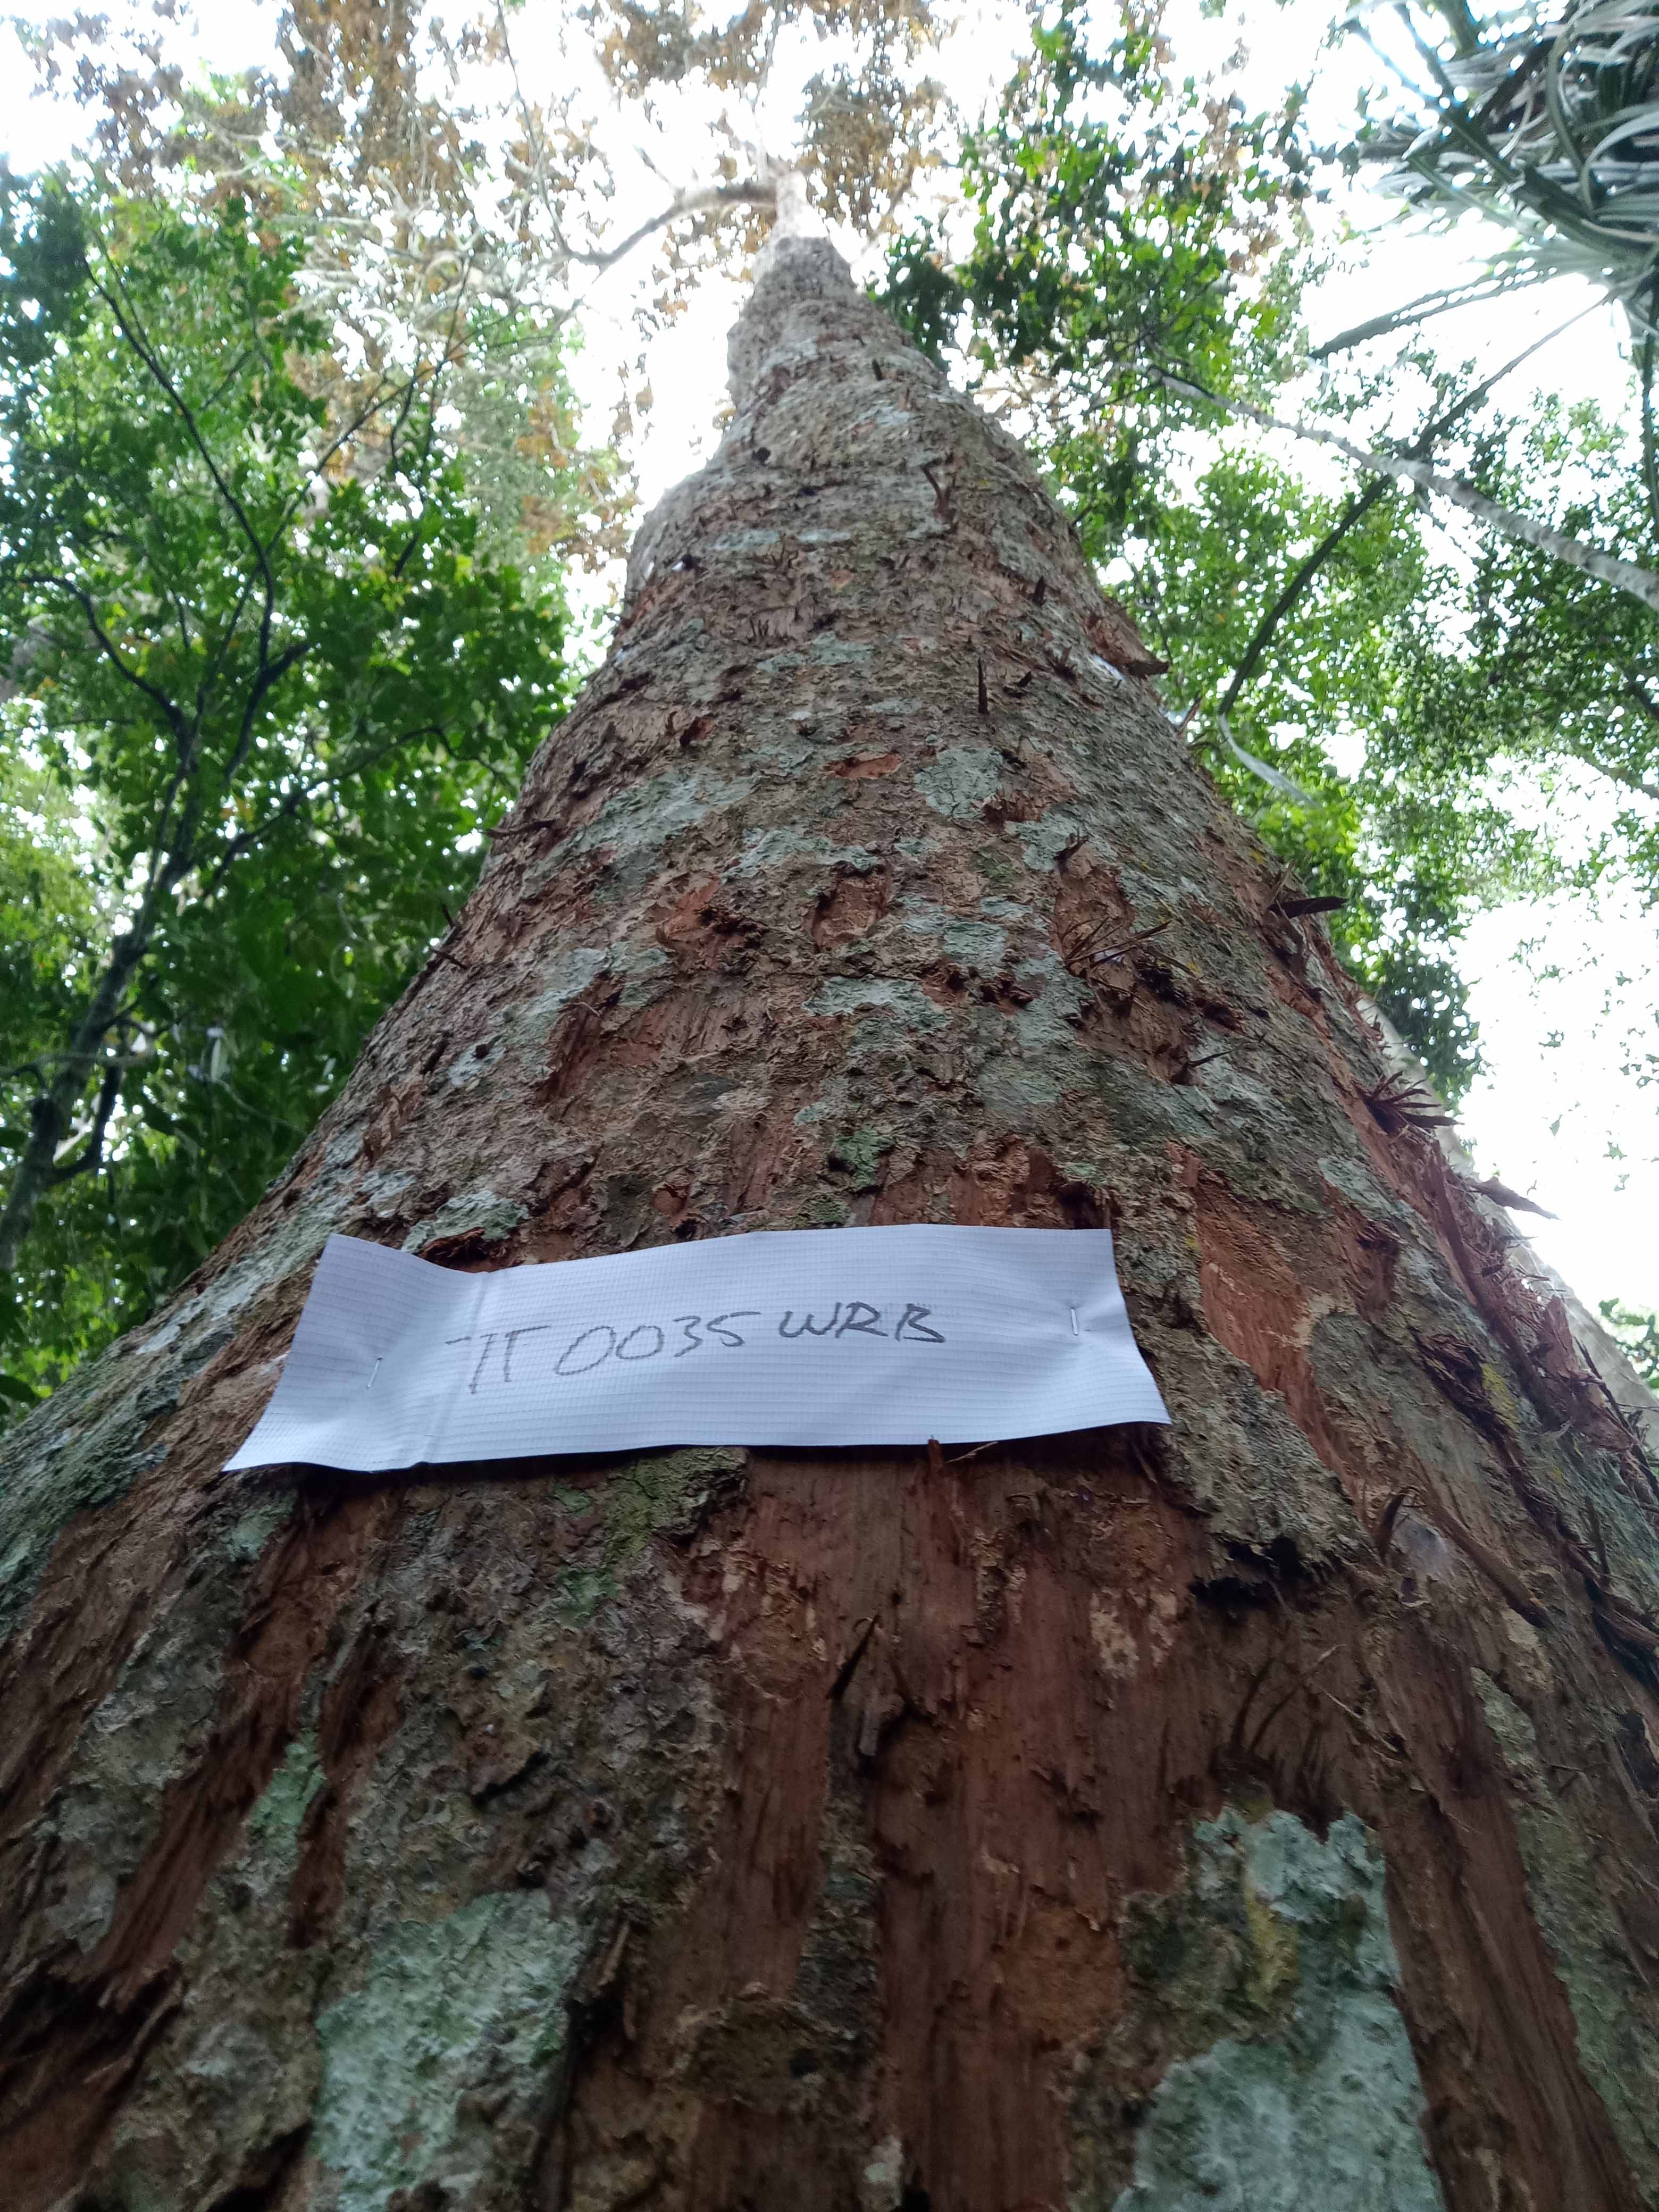 TT 0035 WRB